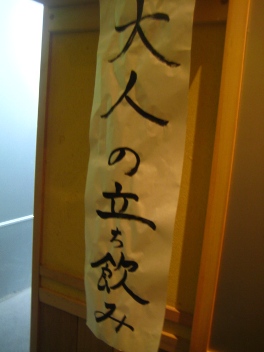 大人の立ち飲み